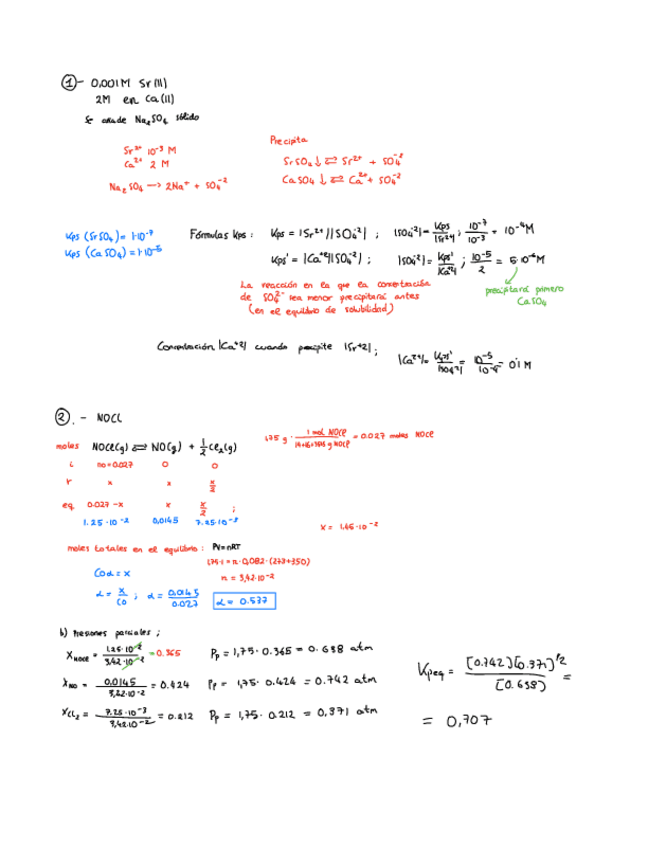 1- 0,001 M Sr(II)
2M en Ca(II)
Se añade Na2SO4 sólido
Precipita
Sr2+ 10-3 M
Ca2+ 2 M
SrSO4 ↓ ⇌ Sr2+ + SO4-2
CaSO4 ↓ ⇌ Ca2+ + SO4-2
Na2SO4 → 2Na+ + SO4-2
Kps (SrSO4) = 1·10-7
Kps (CaSO4) = 1·10-5
Fórmulas Kps: Kps = |Sr2+||SO4-2| ; |SO4-2| = Kps/|Sr2+| ; 10-7/10-3 = 10-4 M
Kps' = |Ca+2||SO4-2| ; |SO4-2| = Kps'/|Ca+2| ; 10-5/2 = 5·10-6 M
La reacción en la que la concentración
de SO42- sea menor precipitará antes
(en el equilibrio de solubilidad)
precipitará primero
CaSO4
Concentración |Ca+2| cuando precipite |Sr+2| ;
|Ca2+| = Kps'/|SO4-2| = 10-5/10-4 = 0'1 M
2.- NOCl
moles NOCl(g) ⇌ NO(g) + 1/2 Cl2(g)
1,75 g · 1 mol NOCl / = 0.027 moles NOCl
i no=0.027 0 0
r x x x/2
eq 0.027-x x x/2 ;
1.25·10-2 0,0145 7.25·10-3
x = 1,45·10-2
moles totales en el equilibrio: PV=nRT
1,75·1 = n·0,082·(273+350)
n = 3,42·10-2
Co α = x
α = x/Co ; α = 0.0145/0.027 α = 0.537
b) Presiones parciales ;
XNOCl = 1.25·10-2/3,42·10-2 = 0.365 Pp = 1,75·0.365 = 0.638 atm
XNO = 0.0145/3,42·10-2 = 0.424 Pp = 1,75·0.424 = 0.742 atm
XCl2 = 7.25·10-3/3,42·10-2 = 0.212 Pp = 1,75·0.212 = 0,371 atm
Kpeq = [0.742][0.371]1/2/[0.638] =
= 0,707